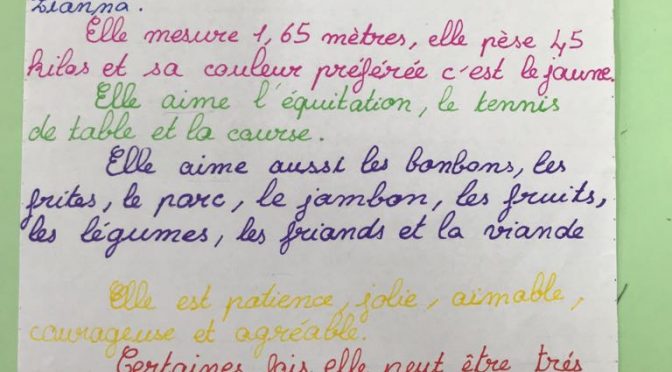 Lianna.
Elle mesure 1,65 mètres, elle pèse 45
kilos et sa couleur préférée c'est le jaune.
Elle aime l'équitation, le tennis
de table et la course.
Elle aime aussi les bonbons, les
frites, le parc, le jambon, les fruits,
les légumes, les friands et la viande
Elle est patience, jolie, aimable,
courageuse et agréable.
Certaines fois elle peut être trés